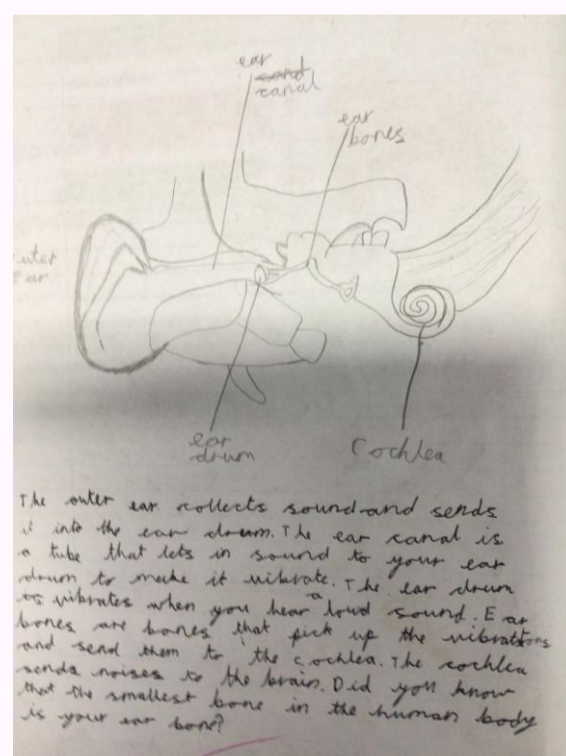 ear
canal
ear
bones
uter
Ear
ear
drum
Cochlea
The outer ear collects sound and sends
it into the ear drum. The ear canal is
a tube that lets in sound to your ear
drum to make it vibrate. The ear drum
vibrates when you hear a loud sound. Ear
bones are bones that pick up the vibrations
and send them to the cochlea. The cochlea
sends noises to the brain. Did you know
that the smallest bone in the human body
is your ear bone?